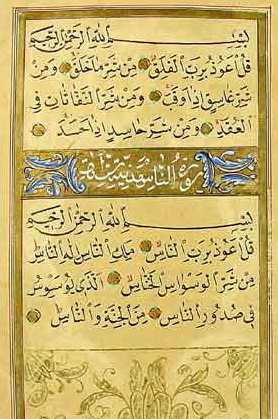 بِسْمِ اللهِ الرَّحْمٰنِ الرَّحِيمِ
قُلْ أَعُوذُ بِرَبِّ الْفَلَقِ مِنْ شَرِّ مَا خَلَقَ وَمِنْ
شَرِّ غَاسِقٍ إِذَا وَقَبَ وَمِنْ شَرِّ النَّفَّاثَاتِ فِى
الْعُقَدِ وَمِنْ شَرِّ حَاسِدٍ إِذَا حَسَدَ
سورة الناس
بِسْمِ اللهِ الرَّحْمٰنِ الرَّحِيمِ
قُلْ أَعُوذُ بِرَبِّ النَّاسِ مَلِكِ النَّاسِ إِلٰهِ النَّاسِ
مِنْ شَرِّ الْوَسْوَاسِ الْخَنَّاسِ الَّذِى يُوَسْوِسُ
فِى صُدُورِ النَّاسِ مِنَ الْجِنَّةِ وَالنَّاسِ